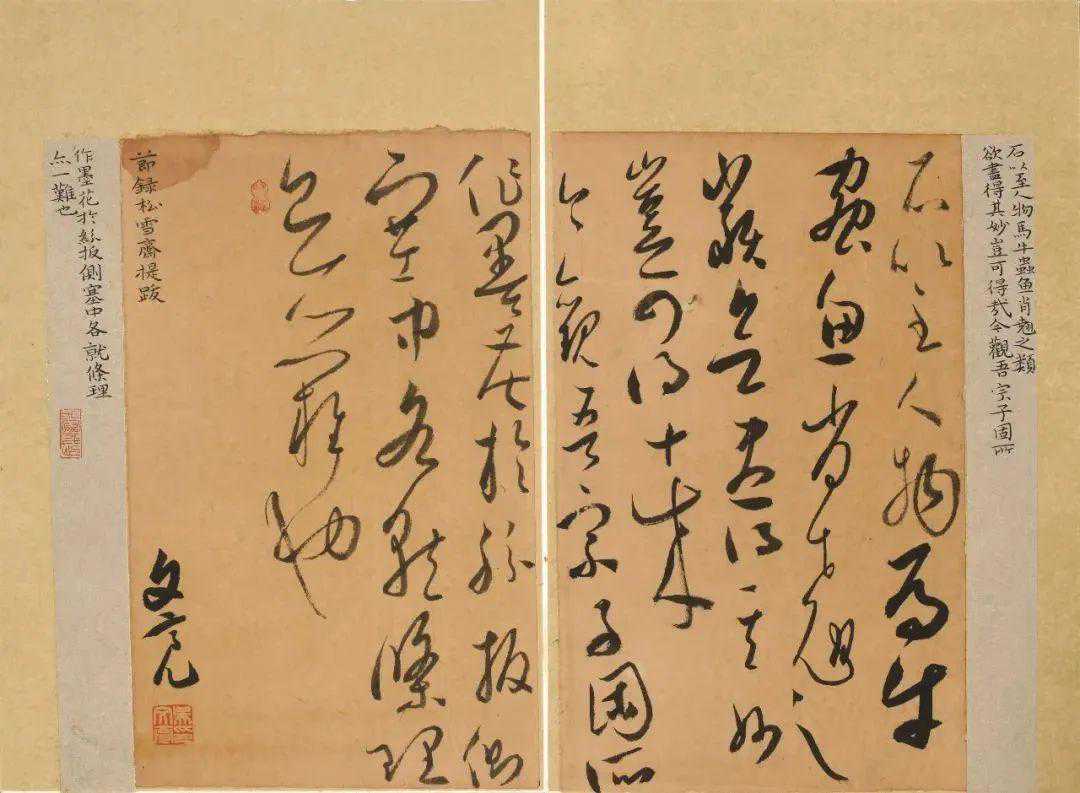 石以至人物馬牛蟲鱼肖翹之類
欲盡得其妙豈可得哉今觀吾宗子固所
石以至人物馬牛
蟲魚肖翹之
類欲盡得其妙
豈可得哉
今觀吾宗子固所
作墨花於紛披側
塞中各就條理
亦一難也
節録松雪齋提跋
文亮
作墨花於紛披側塞中各就條理
亦一難也